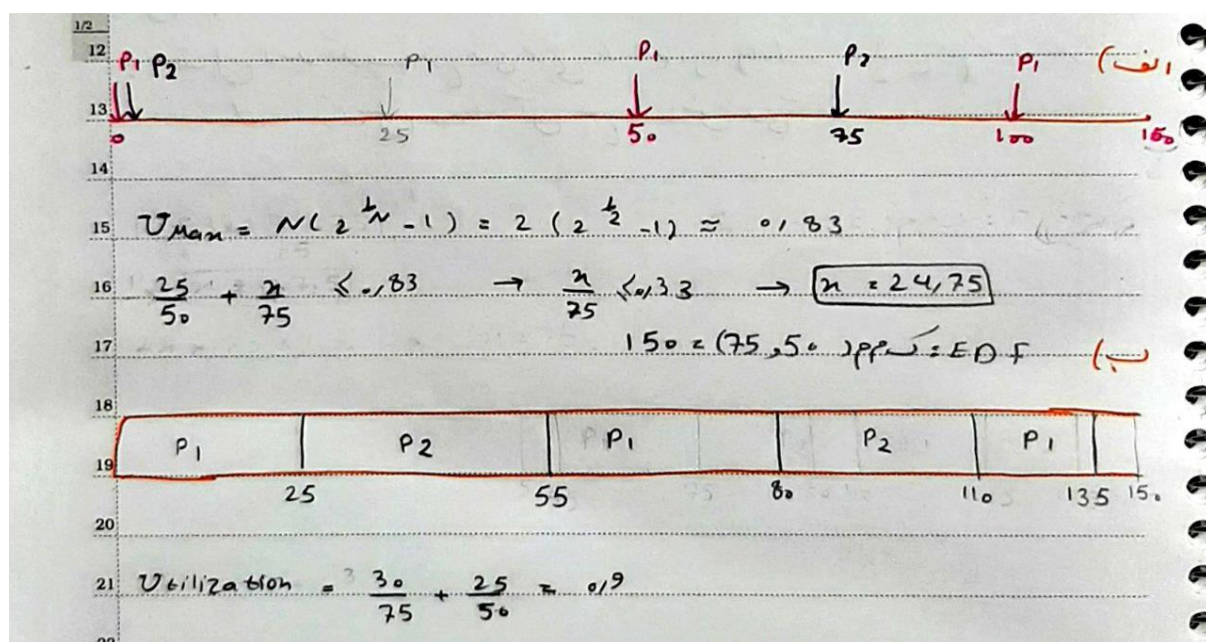 1/2
12
P₁ P₂ P₁ P₁ P₂ P₁ الف)
13
0 25 50 75 100 150
14
15 U_Max = N(2^(1/N) - 1) = 2(2^(1/2) - 1) ≈ 0,83
16 25/50 + x/75 ≤ 0,83 → x/75 ≤ 0,33 → x = 24,75
17 ب) EDF : ک م م (50 , 75) = 150
18
P₁ P₂ P₁ P₂ P₁
19
25 55 80 110 135 150
20
21 Utilization = 30/75 + 25/50 = 0,9